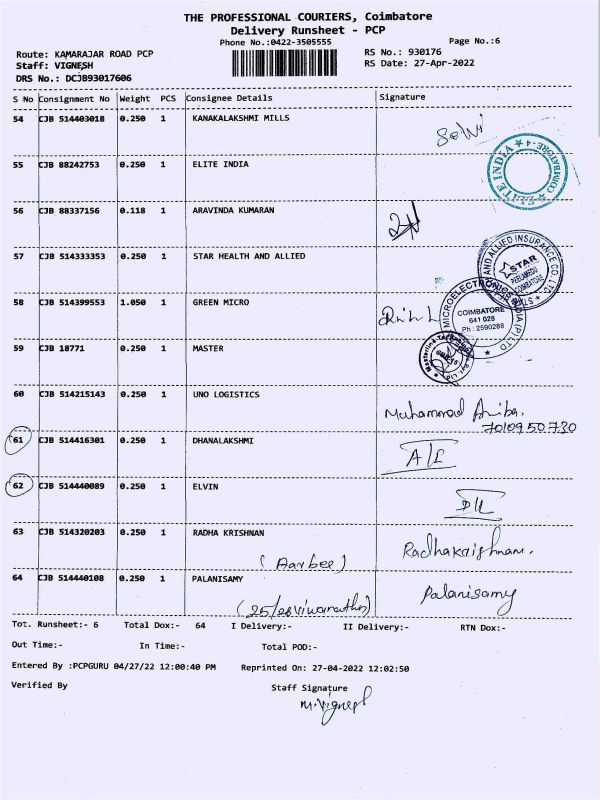 THE PROFESSIONAL COURIERS, Coimbatore
Delivery Runsheet - PCP
Phone No.:0422-3505555
Page No.:6
Route: KAMARAJAR ROAD PCP
RS No.: 930176
Staff: VIGNESH
RS Date: 27-Apr-2022
DRS No.: DCJB93017606
S No Consignment No Weight PCS Consignee Details Signature
54 CJB 514403018 0.250 1 KANAKALAKSHMI MILLS
55 CJB 88242753 0.250 1 ELITE INDIA
ELITE INDIA ★ COIMBATORE-4 ★
56 CJB 88337156 0.118 1 ARAVINDA KUMARAN
57 CJB 514333353 0.250 1 STAR HEALTH AND ALLIED
AND ALLIED INSURANCE CO. LTD
STAR
PEELAMEDU
COIMBATORE
58 CJB 514399553 1.050 1 GREEN MICRO
COIMBATORE
641 028
Ph : 2590288
59 CJB 18771 0.250 1 MASTER
60 CJB 514215143 0.250 1 UNO LOGISTICS Muhammad
7010950730
61 CJB 514416301 0.250 1 DHANALAKSHMI
62 CJB 514440089 0.250 1 ELVIN
63 CJB 514320203 0.250 1 RADHA KRISHNAN Radhakrishnan.
(Aarbee)
64 CJB 514440108 0.250 1 PALANISAMY Palanisamy
Tot. Runsheet:- 6 Total Dox:- 64 I Delivery:- II Delivery:- RTN Dox:-
Out Time:- In Time:- Total POD:-
Entered By :PCPGURU 04/27/22 12:00:40 PM Reprinted On: 27-04-2022 12:02:50
Verified By Staff Signature
M.Vignesh